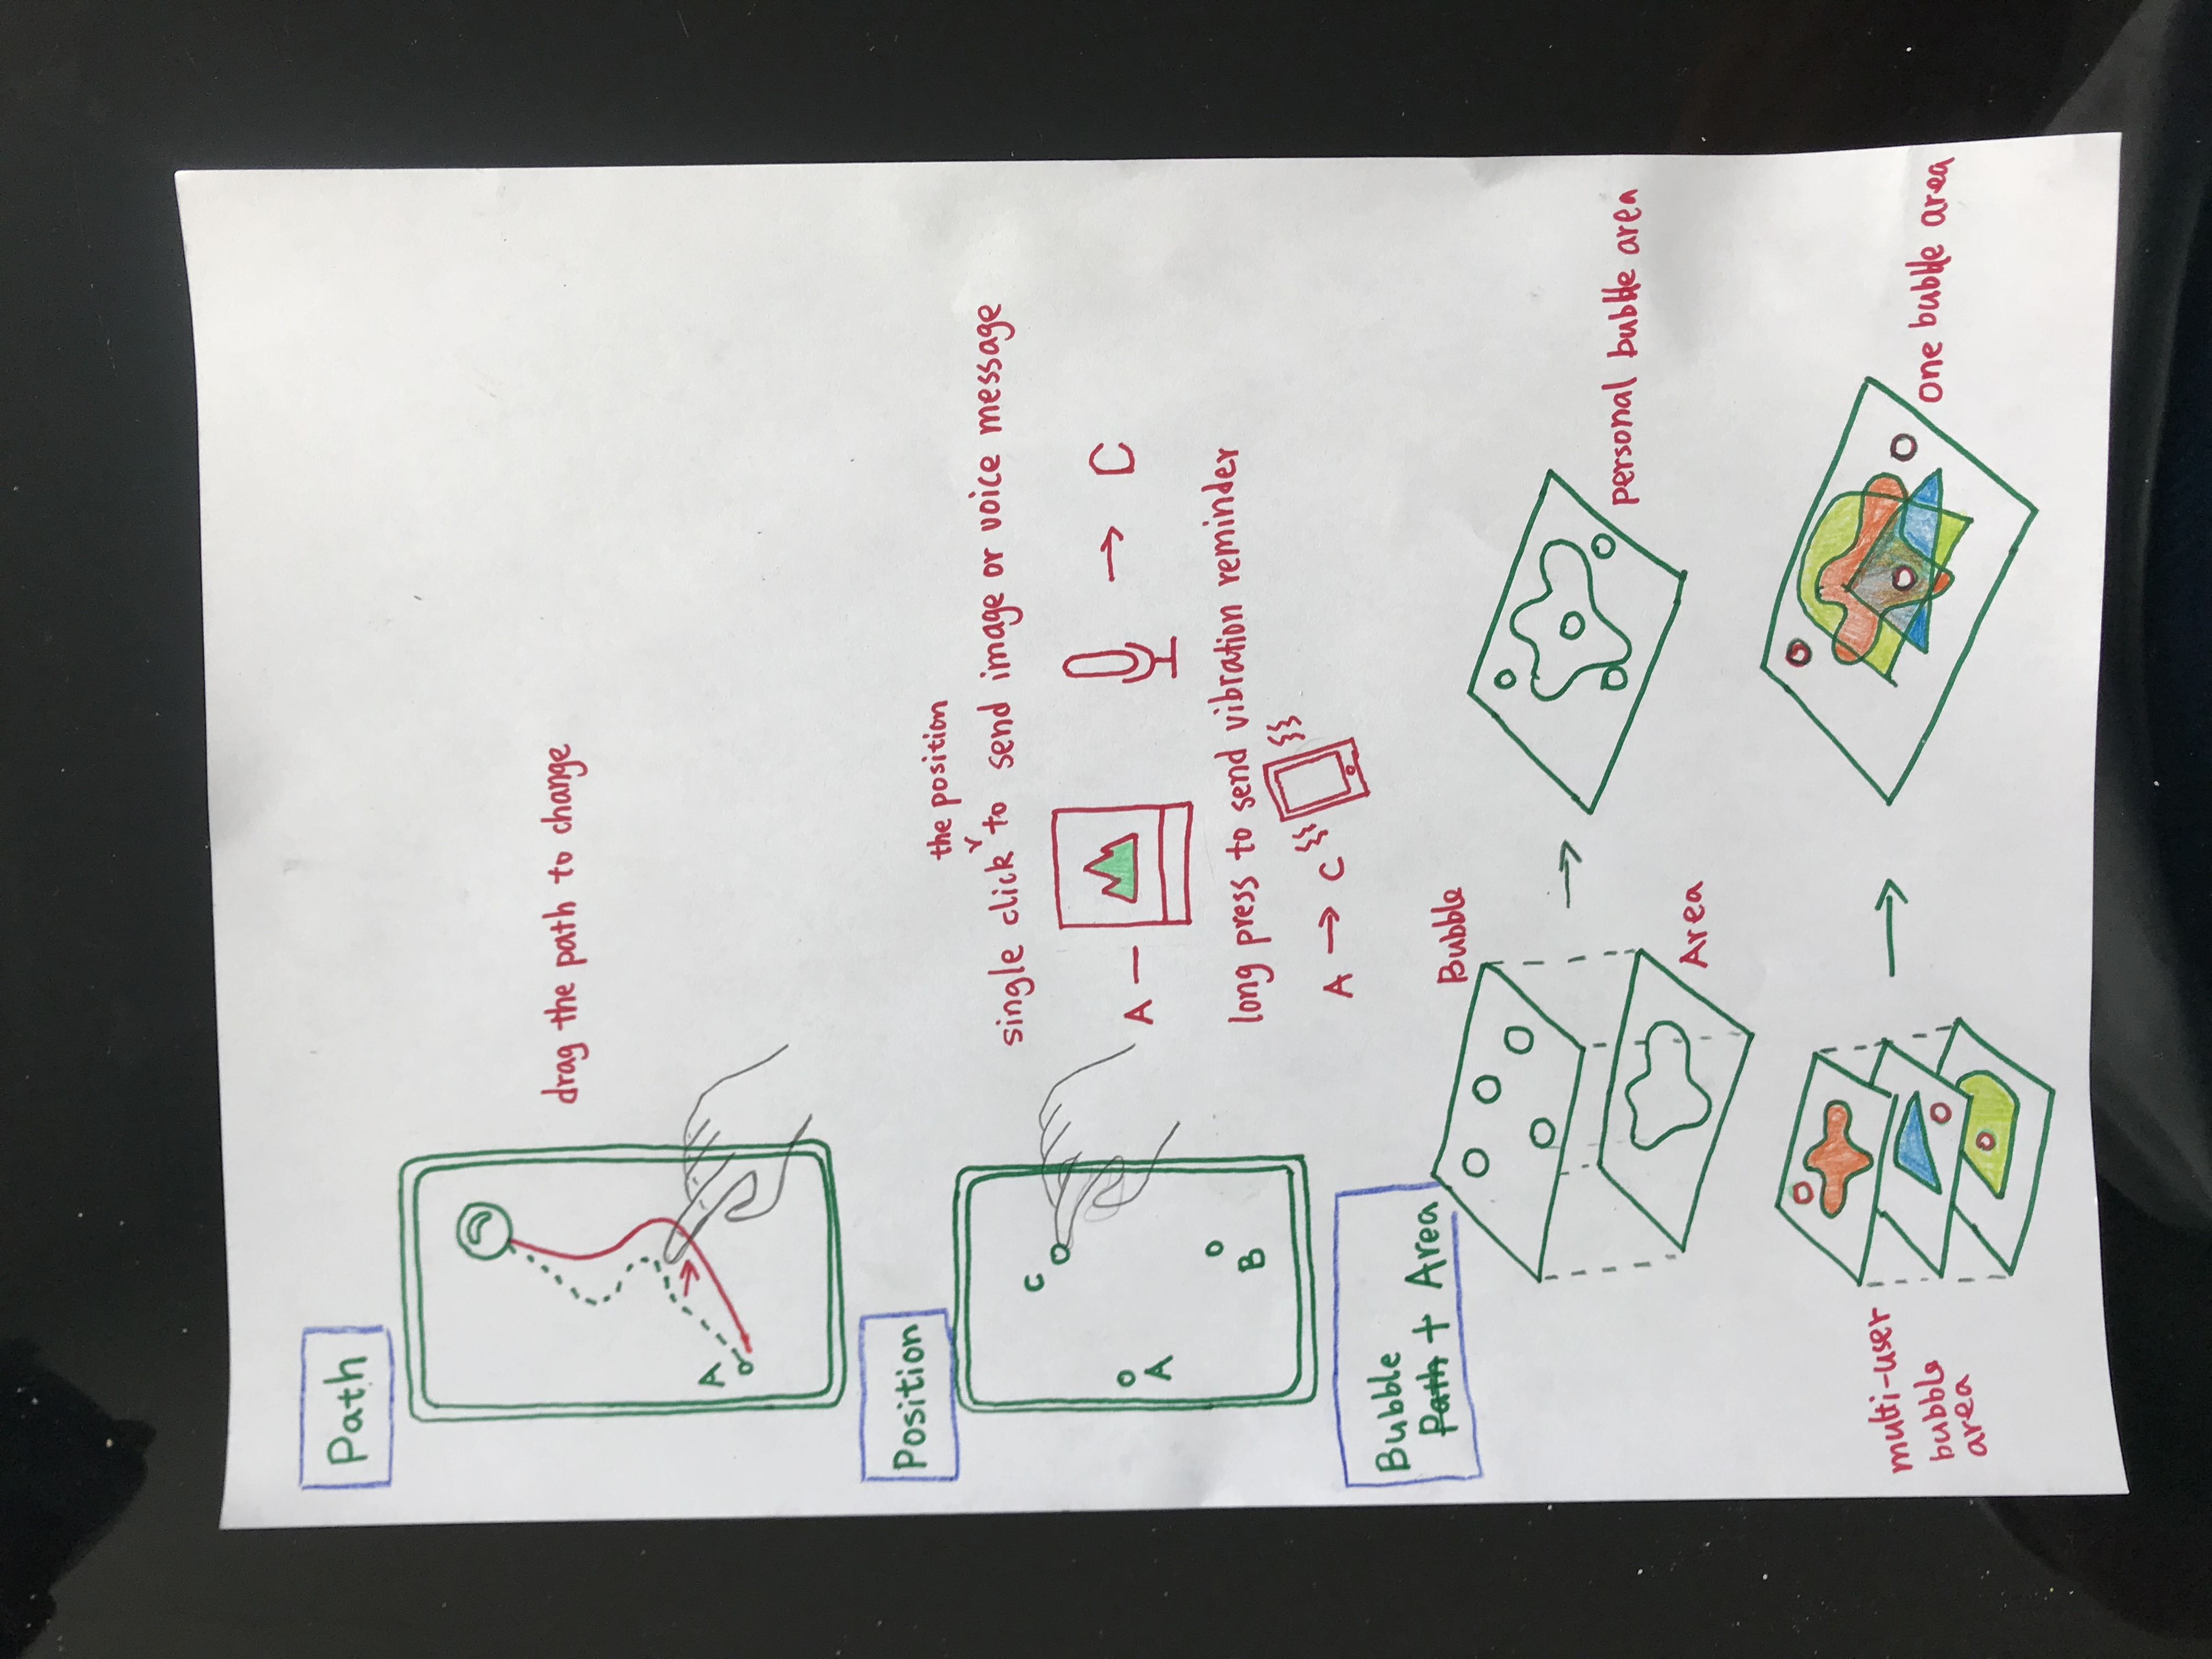 Path
drag the path to change
A
Position
the position
single click to send image or voice message
C
A
B
A — → C
long press to send vibration reminder
A → C
Bubble
Path + Area
Bubble
Area
→
personal bubble area
multi-user
bubble
area
→
one bubble area